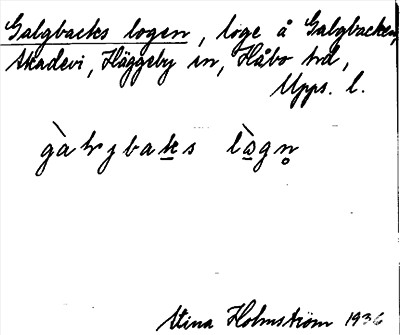 Galgbacks logen, loge å Galgbacken,
Akadevi, Häggeby sn, Håbo hd,
Upps. l.
gàlrjbaks lògn̥
Stina Holmström 1936